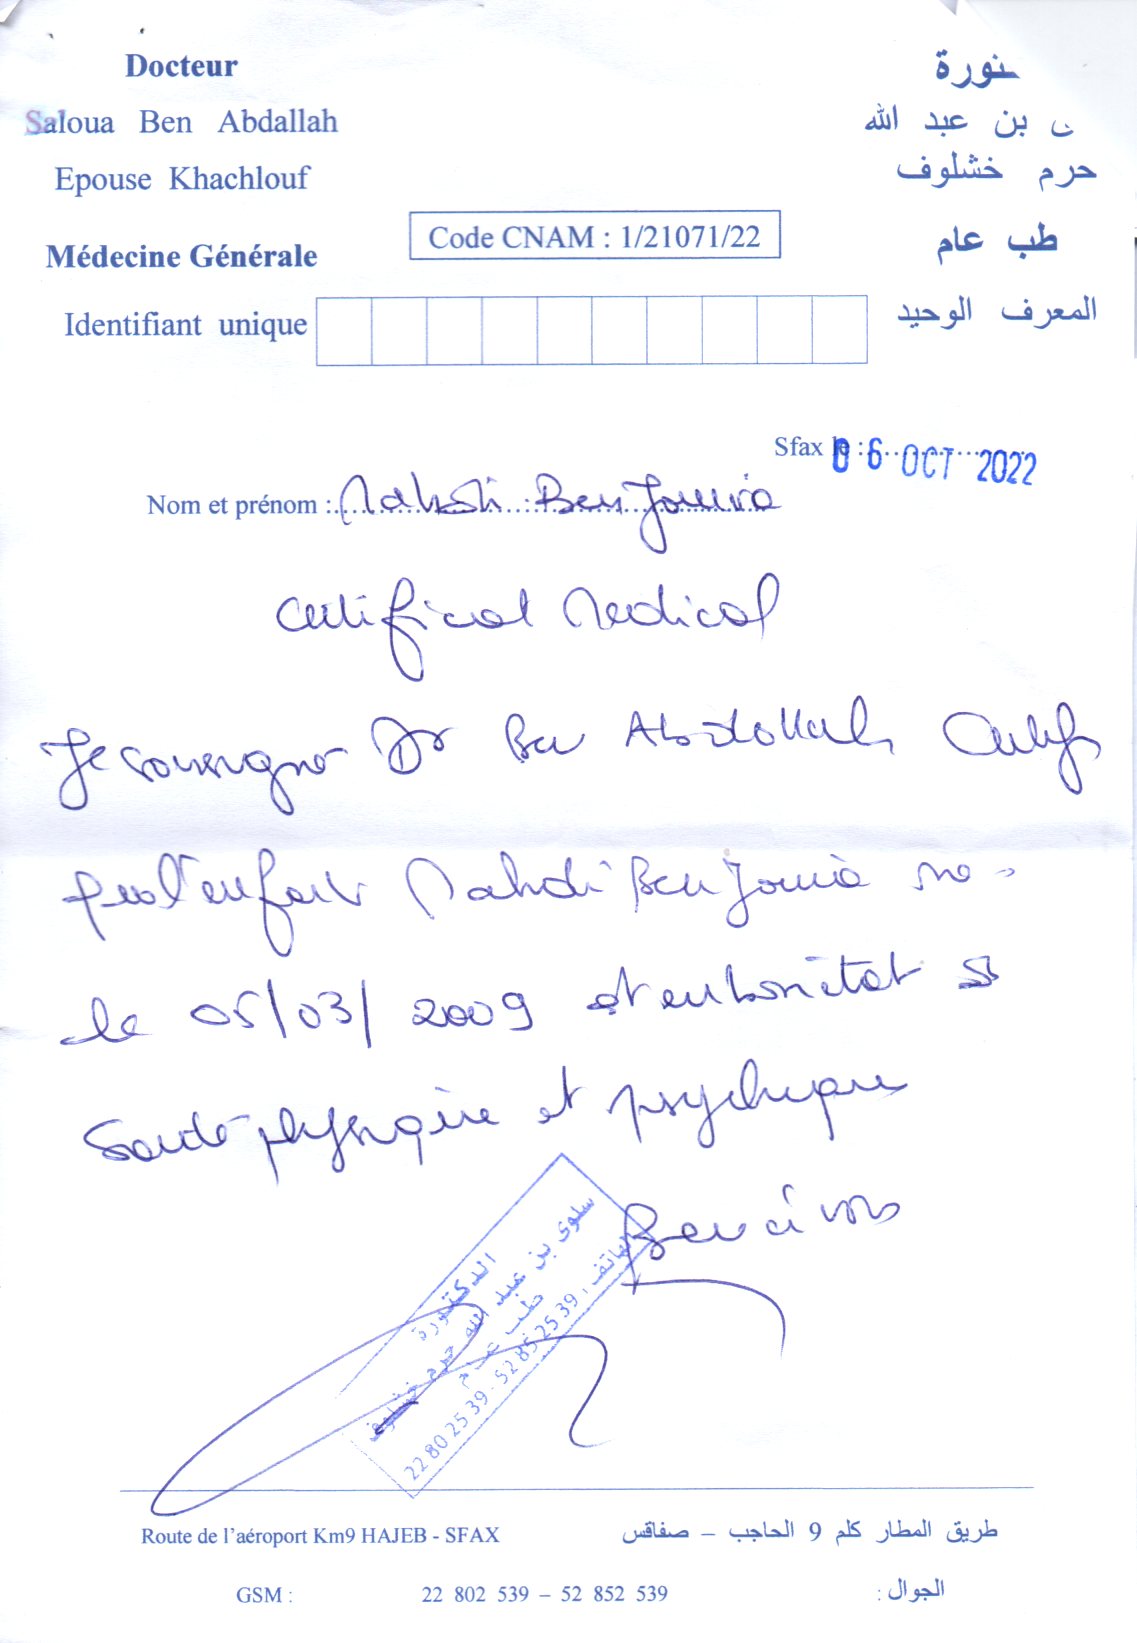 Docteur
Saloua Ben Abdallah
Epouse Khachlouf
Médecine Générale
Code CNAM : 1/21071/22
Identifiant unique
نورة
ى بن عبد الله
حرم خشلوف
طب عام
المعرف الوحيد
Sfax le : 06 OCT 2022
Nom et prénom : Mahdi Ben Jouira
Certificat Medical
Je soussigner Dr Ben Abdallah Certifie
que l'enfant Mahdi Ben Jouira né
le 05/03/2009 est en bon état de
Santé physique et psychique
الدكتورة
سلوى بن عبد الله حرم خشلوف
طب عام
الهاتف : 22 80 25 39 - 52 85 25 39
Route de l'aéroport Km9 HAJEB - SFAX
طريق المطار كلم 9 الحاجب – صفاقس
GSM : 22 802 539 – 52 852 539 الجوال :